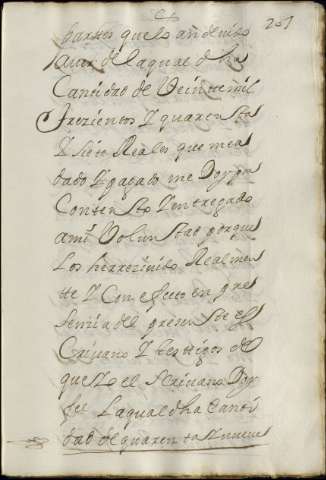 201
partes que lo an de uido
auer de laqual dha
Cantidad de Veinte mil
trezientos Y quarenta
Y siete Reales que me a
dado Y pagado me Doy por
Contento Y entregado
a mi Voluntad porque
los he rrezeuido Realmen
te Y Con efecto en pre
senzia del presente es
criuano Y testigos de
que Yo el scriuano Doy
fee Laqual dha Canti
dad de quarenta Y nueue